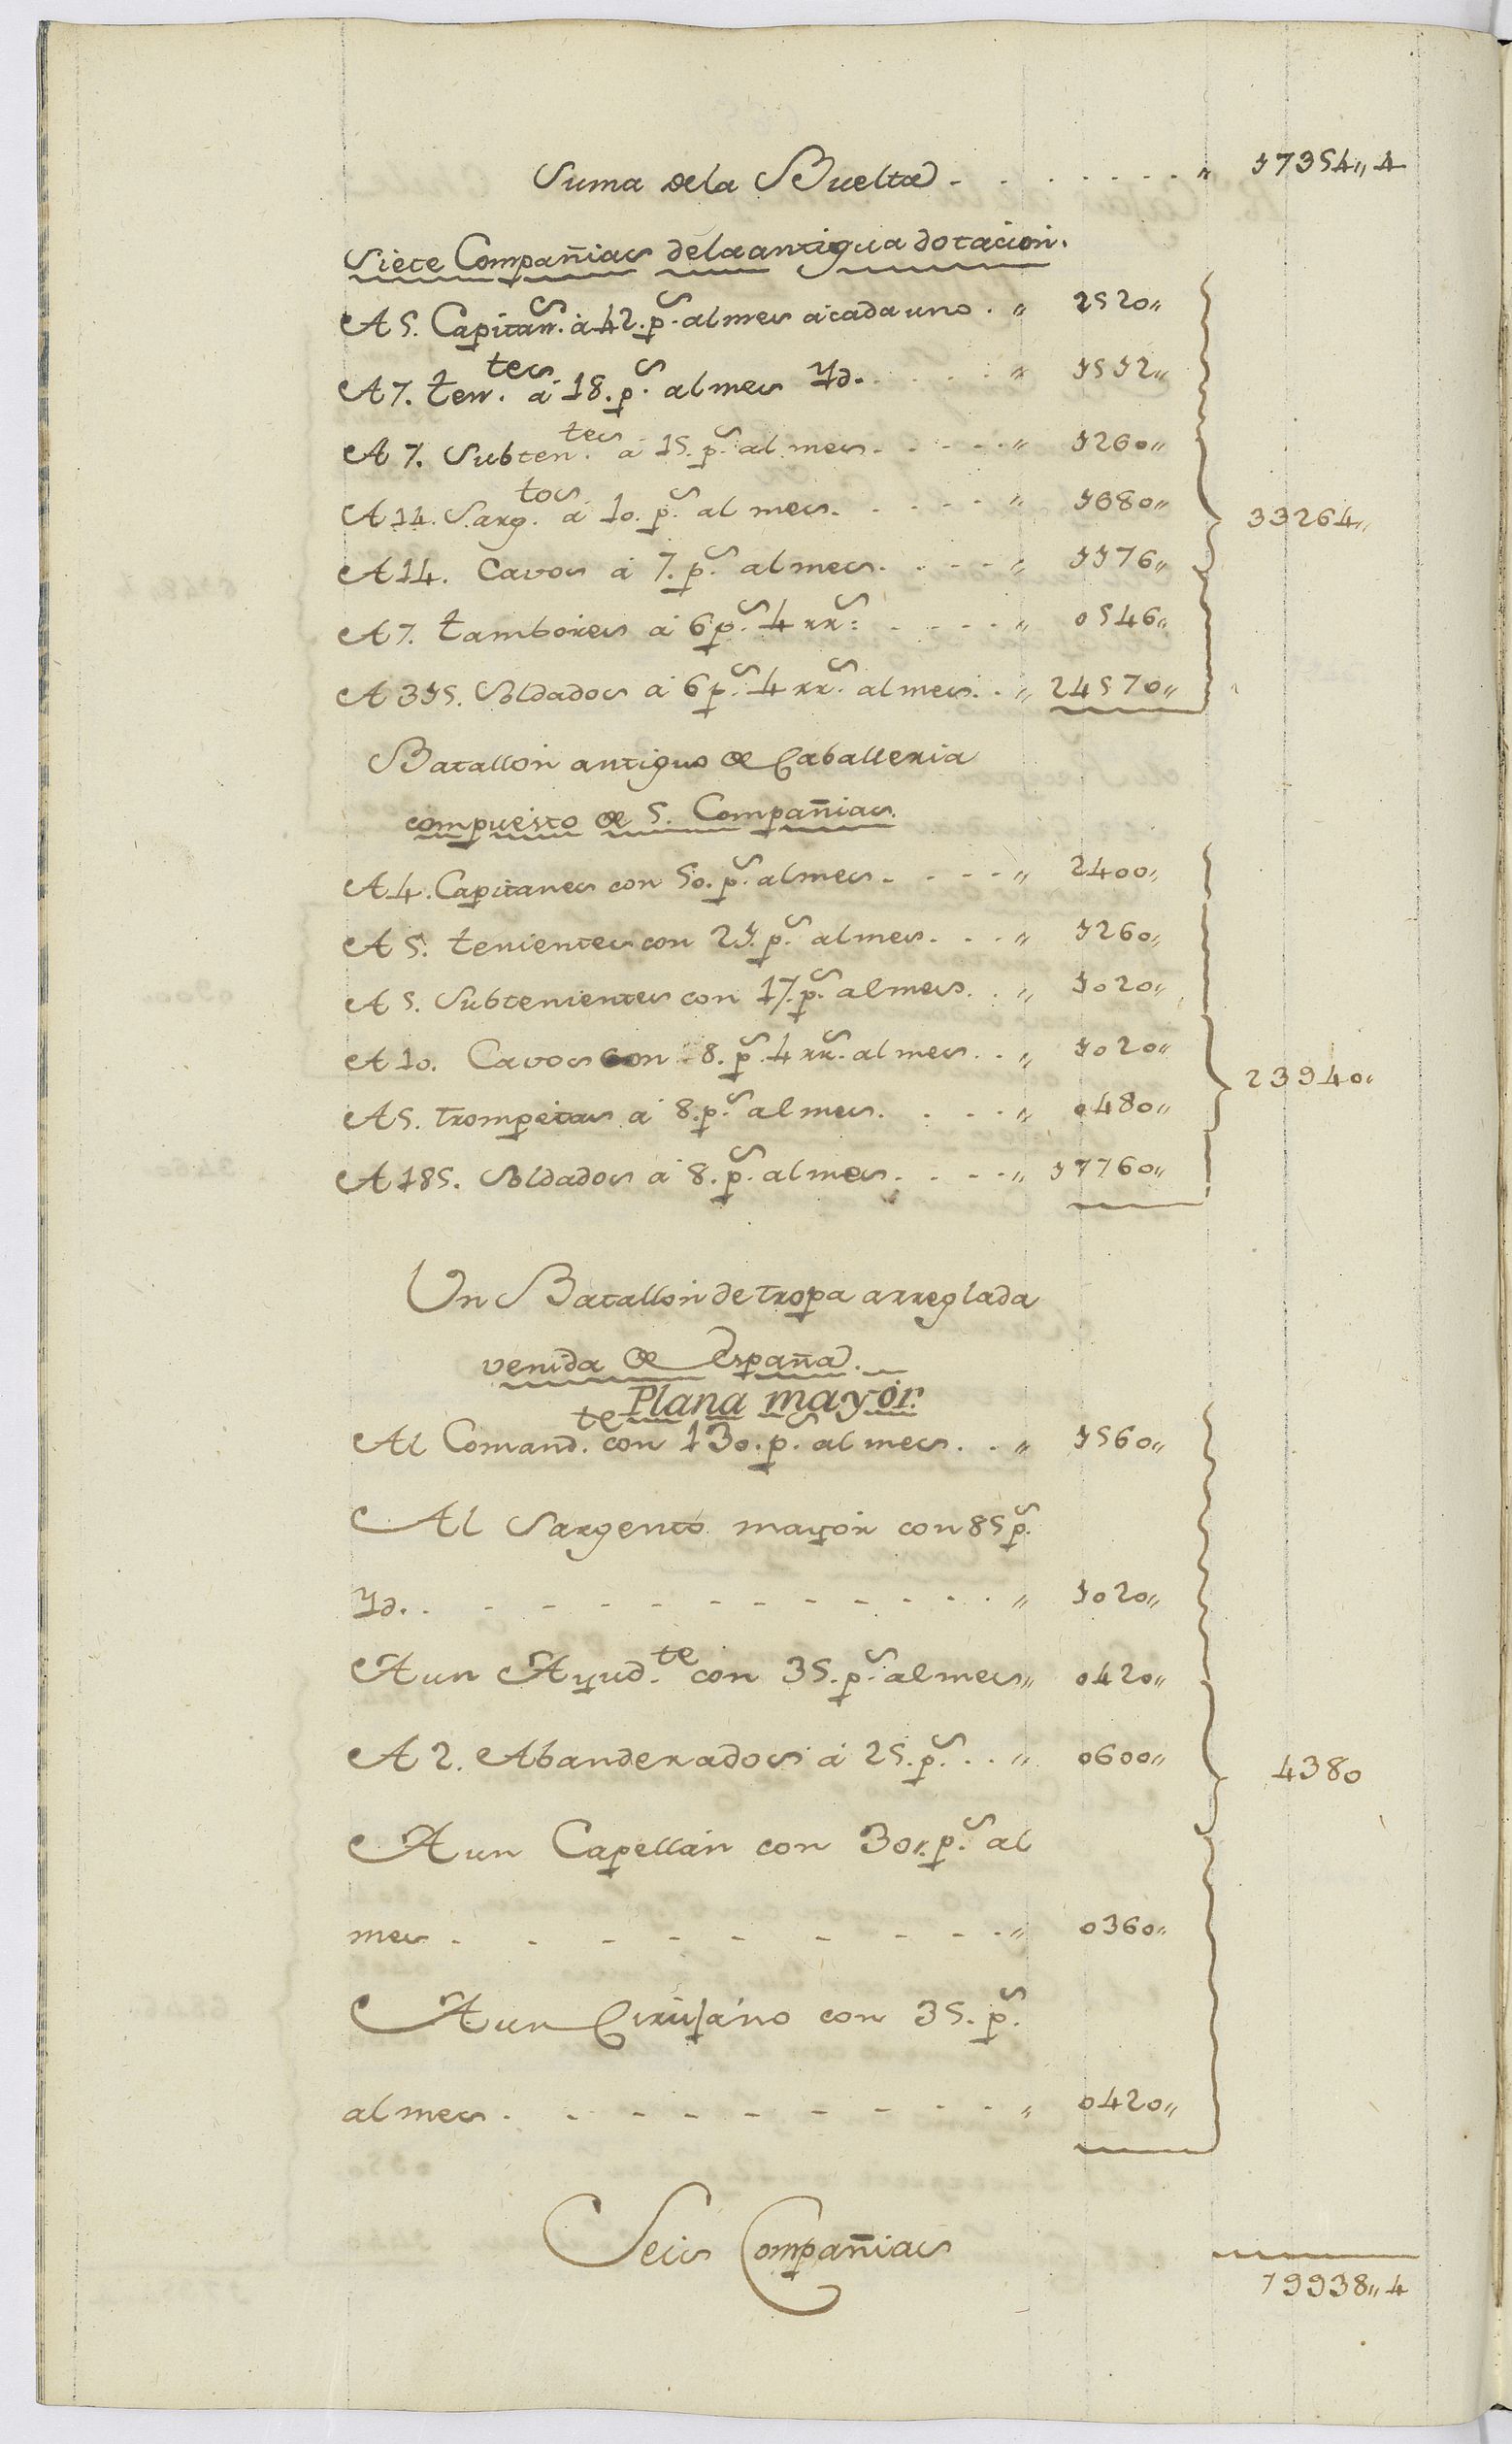 Suma dela Buelta - . . . . . . . " 17354,, 4
Siete Compañias dela antigua dotacion.
A 5. Capitan.s à 42. p.s al mes à cada uno . " 2520,,
A 7. ten.tes à 18. p.s al mes Yd. . . . . " 1512,,
A 7. Subten.tes à 15. p.s al mes. . . . . " 1260,,
A 14. Sarg.tos à 10. p.s al mes. . . . . " 1680,,
A 14. Cavos à 7. p.s al mes. . . . . " 1176,,
A 7. tambores à 6 p.s 4 rr.s . . . . . " 0546,,
A 315. Soldados à 6 p.s 4 rr.s al mes. . " 24570,,
33264,,
Batallon antiguo de Caballeria
compuesto de 5. Compañias.
A 4. Capitanes con 50. p.s al mes. . . . . " 2400,,
A 5. tenientes con 21. p.s al mes. . . " 1260,,
A 5. Subtenientes con 17. p.s al mes. . " 1020,,
A 10. Cavos con 8. p.s 4 rr.s al mes. . " 1020,,
A 5. trompetas à 8. p.s al mes. . . . . " 0480,,
A 185. Soldados à 8. p.s al mes. . . . . " 17760,,
23940,,
Un Batallon de tropa arreglada
venida de España.
Plana mayor.
Al Comand.te con 130. p.s al mes. . " 1560,,
Al Sargento mayor con 85 p.s
Yd. . . . . . . . . . . . " 1020,,
A un Ayud.te con 35. p.s al mes " 0420,,
A 2. Abanderados à 25. p.s . . " 0600,,
A un Capellan con 30,, p.s al
mes . . . . . . . . . . " 0360,,
A un Cirujano con 35. p.s
al mes . . . . . . . . . . " 0420,,
4380
Seis Compañias
79938,, 4